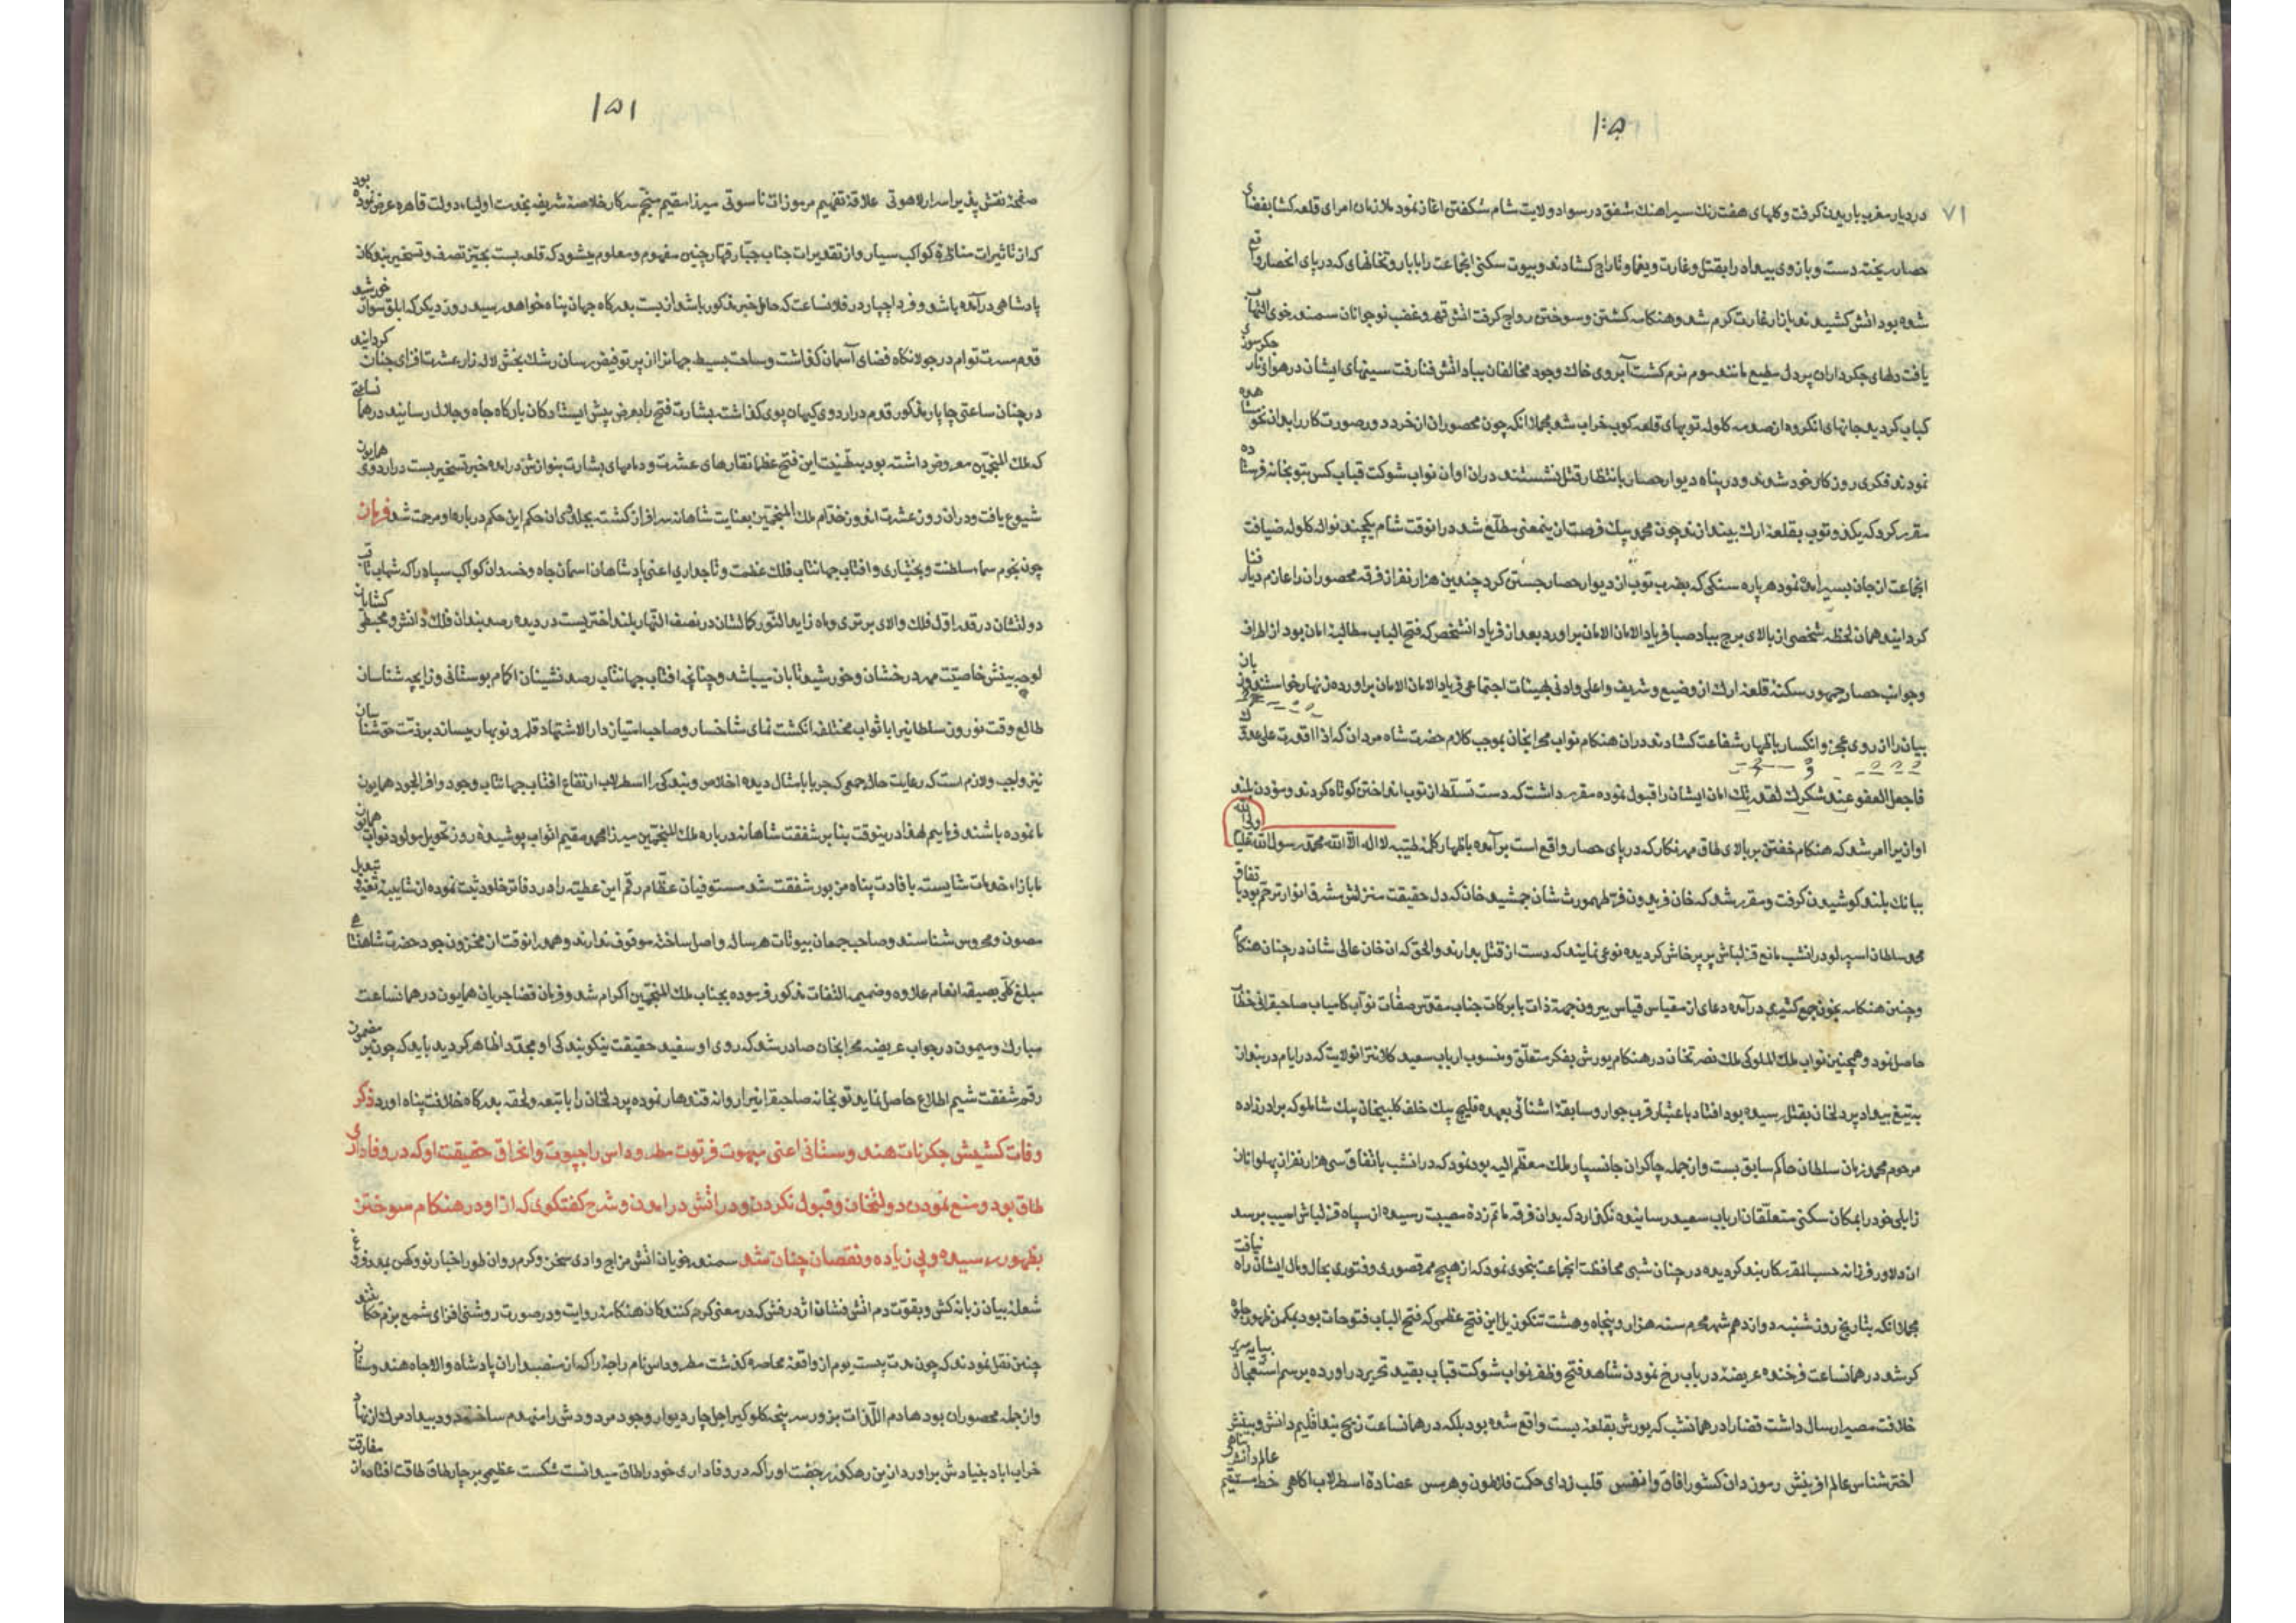 ۱۵۰
۷۱
در دیار مغرب باریدن کرفت و کلهای هفت رنك سیر اهنك شفق در سواد ولایت شام شکفتن اغاز نمود ملازمان امرای قلعه کشا بفضای
حصار ریخته دست و بازوی بیداد را بقتل و غارت و یغما و تاراج کشادند و بیوت سکنی انجماعت را با بار و تخانهای که در پای انحصار واقع
شده بود اتش کشیدند بازار غارت کرم شد و هنکامه کشتن و سوختن رواج کرفت اتش قهر و غضب نوجوانان سمندر خوی التهاب
یافت دلهای جکرداران پر دل مطیع مانند موم نرم کشت آبروی خاك وجود مخالفان بباد اتش فنا رفت سینهای ایشان در هوای نار جکرسوزی
کباب کردید جانهای انکروه از صدمه کلوله توپهای قلعه کوب خراب شد مجملا انکه چون محصوران ان خرد دور صورت کار را بدان نحو مشاهده
نمودند فکری روزکار خود شدند و در پناه دیوار حصار بانتظار قتل نشستند دران اوان نواب شوکت قباب کس بتوبخانه فرستاده
مقرر کرد که یکدو توپ بقلعه ارك بیندازند چون محمد بیك فرصت از ینمعنی مطلع شد در انوقت شام یکچند نواله کلوله ضیافت
انجماعت از جان بسیر امده نمود هر پاره سنکی که بضرب توپ از دیوار حصار جستن کرد چندین هزار نفر از فرقه محصوران را عازم دیار فنا
کردانید همان لحظه شخصی از بالای برج بباد صبا فریاد الامان الامان براورد بعد از فریاد انشخص که فتح الباب مطالبه امان بود از اطراف
وجوانب حصار جمهور سکنه قلعه ارك از وضیع و شریف و اعلی و ادنی بهیئات اجتماعی فریاد الامان الامان براورده زنهار خواستند و زبان
بیان را از روی عجز و انکسار باظهار شفاعت کشادند دران هنکام نواب محرابخان بموجب کلام حضرت شاه مردان که اذا اقدرت علی عدوك
فاجعل العفو عنه شکرك لقدرتك امان ایشان را قبول نموده مقرر داشت که دست تسلط از توپ انداختن کوتاه کردند و موذن بلند
اوازیرا امر شد که هنکام خفتن بر بالای طاق مهر نکار که در پای حصار واقع است بر آمده باظهار کلمه طیبه لا اله الا الله محمد رسول الله علیا ولی الله
ببانك بلند کوشیدن کرفت و مقرر شد که خان فریدون فر طهمورث شان جمشید خان که دل حقیقت منزلش مشرق انوار ترحم بود باتفاق
محمد سلطان اسپرلو در انشب مانع قزلباش پر پرخاش کردیده نوعی نمایند که دست از قتل بدارند و الحق که ان خان عالی شان در چنان هنکام
و چنین هنکامه بخون جمع کثیری در آمده دعای از مقیاس قیاس بیرون جهة ذات با برکات جناب مقدس صفات نواب کامیاب صاحبقرانی خطاب
حاصل نمود و همچنین نواب ملك الملوکی ملك نصرتخان در هنکام یورش بفکر متعلق و منسوب ارباب سعید کلانتر انولایت که در ایام دربندان
به تیغ بیداد پردلخان بقتل رسیده بود افتاد باعتبار قرب جوار و سابقه اشنائی بعهده قلیج بیك خلف کلبیخان بیك شاملو که برادر زاده
مرحوم محمد زمان سلطان حاکم سابق بست و از جمله چاکران جانسپار ملك معظم الیه بود نمود که در انشب باتفاق سی هزار نفر از پهلوانان
زابلی خود را بمکان سکنی متعلقان ارباب سعید رسانیده نکذارد که بدان فرقه ماتم زده مصیبت رسیده از سپاه قزلباش اسیب برسد
ان دلاور فرزانه حسب المقرر کاربند کردیده در چنان شبی محافظت انجماعت بنحوی نمود که از هیچ ممر قصوری و فتوری بحال و مال ایشان راه نیافت
مجملا انکه بتاریخ روز شنبه دوازدهم شهر محرم سنه هزار و پنجاه و هشت تنکوزیل این فتح عظمی که فتح الباب فتوحات بود بمکمن ظهور جلوه
کر شد در همانساعت فرخنده عریضه در باب رخ نمودن شاهد فتح و ظفر نواب شوکت قباب بقید تحریر دراورده برسم استعجال بپایه سریر
خلافت مصیر ارسال داشت قضا را در همانشب که یورش بقلعه بست واقع شده بود بلکه در همانساعت زیج بند اقلیم دانش و بینش
اختر شناس عالم افرینش رموزدان کشور افاق و انفس قلب زدای حکمت فلاطون و هرمس عضاده اسطرلاب اکاهی خط مستقیم
۱۵۱
صفحه نقش پذیر اسرار لاهوتی علاقه تفهیم مرموزات ناسوتی میرزا مقیم منجم سرکار خاصه شریفه بخدمت اولیاء دولت قاهره عرض نموده بود
که از تاثیرات مناظره کواکب سیار و از تقدیرات جناب جبار قهار چنین مفهوم و معلوم میشود که قلعه بست بحیز تصرف و تسخیر بندکان
پادشاهی در آمده باشد و فردا چاپار در فلانساعت که حامل خبر مذکور باشد از بست بدرکاه جهان پناه خواهد رسید روز دیکر که ابلق سوار خورشید
قدم مسرت توام در جولانکاه فضای آسمان کذاشت و ساحت بسیط جهانرا از پرتو فیض رسان رشك بخش لاله زار عشرت افزای جنان کردانید
در چنان ساعتی چاپار مذکور قدم در اردوی کیهان پوی کذاشته بشارت فتح را بعرض پیش ایستادکان بارکاه جاه و جلال رسانید در همانساعتی
که ملك المنجمین معروض داشته بود به تهنیت این فتح عظما نقارهای عشرت و دمامهای بشارت بنوازش درامده خبر تسخیر بست در اردوی همایون
شیوع یافت و دران روز عشرت افروز خدام ملك المنجمین بعنایت شاهانه سرافراز کشته بجلدوی ان حکم این حکم درباره او مرحمت شد فرمان
چون نجوم سماء سلطنت و بختیاری و افتاب جهانتاب فلك عظمت و تاجداری اعنی پادشاهان اسمان جاه و خسروان کواکب سپاه را که شهاب ثاقب
دولتشان در قعر اول فلك والای برتری و ماه زاید النور کمالشان در نصف النهار بلند اختریست در دیده رصد بندان فلك دانش و محیطی کشایان
لوحه بینش خاصیت مهر درخشان و خورشید تابان میباشد و چنانچه افتاب جهانتاب رصد نشینان اکمام بوستانی و زایچه شناسان
طالع وقت نوروز سلطانیرا باثواب مختلفه انکشت نمای شاخسار و صاحب امتیاز دار الاشتهار قلمرو نوبهار میساند بر ذمت حق شناسان
نیز واجب و لازم است که رعایت حال جمعی که حربا بامثال دیده اخلاص و بندکی را اسطرلاب ارتفاع افتاب جهانتاب وجود وافر الجود همایون
ما نموده باشند فرماییم لهذا درینوقت بنابر شفقت شاهانه درباره ملك المنجمین میرزا محمد مقیم اثواب پوشیده روز تحویل مولود نواب همایون
ما بازاء خدمات شایسته بافادت پناه مزبور شفقت شد مستوفیان عظام رقم این عطیه را در دفاتر خلود ثبت نموده از شایبه تغییر و تبدیل
مصون و محروس شناسند و صاحب جمعان بیوتات هر ساله واصل ساخته موقوف ندارند و همدرانوقت از مخزون جود حضرت شاهنشاهی
مبلغ کلی بصیغه انعام علاوه و ضمیمه التفات مذکور فرموده بجناب ملك المنجمین اکرام شد و فرمان قضا جریان همایون در همانساعت
مبارك و میمون در جواب عریضه محرابخان صادر شد که روی او سفید حقیقت نیکو بندکی او مجددا ظاهر کردید باید که چون بر مضمون
رقم شفقت شیم اطلاع حاصل نماید توبخانه صاحبقرانیرا روانه قندهار نموده پردلخان را با تبعه و لحقه بدرکاه خلافت پناه اورد ذکر
وفات کشیش جکرنات هندوستانی اعنی مبهوت فرتوت مطرود داس راجپوت و انحراق حقیقت او که در وفاداری
طاق بود و منع نمودن دولتخان و قبول نکردن و در اتش درامدن و شرح کفتکوی که از او در هنکام سوختن
بظهور رسیده و بی زیاده و نقصان چنان شد سمندر خویان اتش مزاج وادی سخن و کرم روان طور اخبار نو و کهن بمد فروغ
شعله بیان زبانه کش و بقوت دم اتش فشان اژدرفش که در معنی کرم کنندکان هنکامه روایت و در صورت روشنی افزای شمع بزم حکایتند
چنین نقل نمودند که چون مدت بیست یوم از واقعه محاصره کذشت مطرود داس نام راجه را که از منصبداران پادشاه والاجاه هندوستان
و از جمله محصوران بود هادم اللذات بزور سرپنجه کلوکیر اجل چار دیوار وجود مردودش را منهدم ساخته دود بیداد مرك از نهاد
خراب اباد بنیادش براورد ازین رهکذر جفت او را که در وفاداری خود را طاق میدانست شکست عظیمی بر چارطاق طاقت افتاده از مفارقت